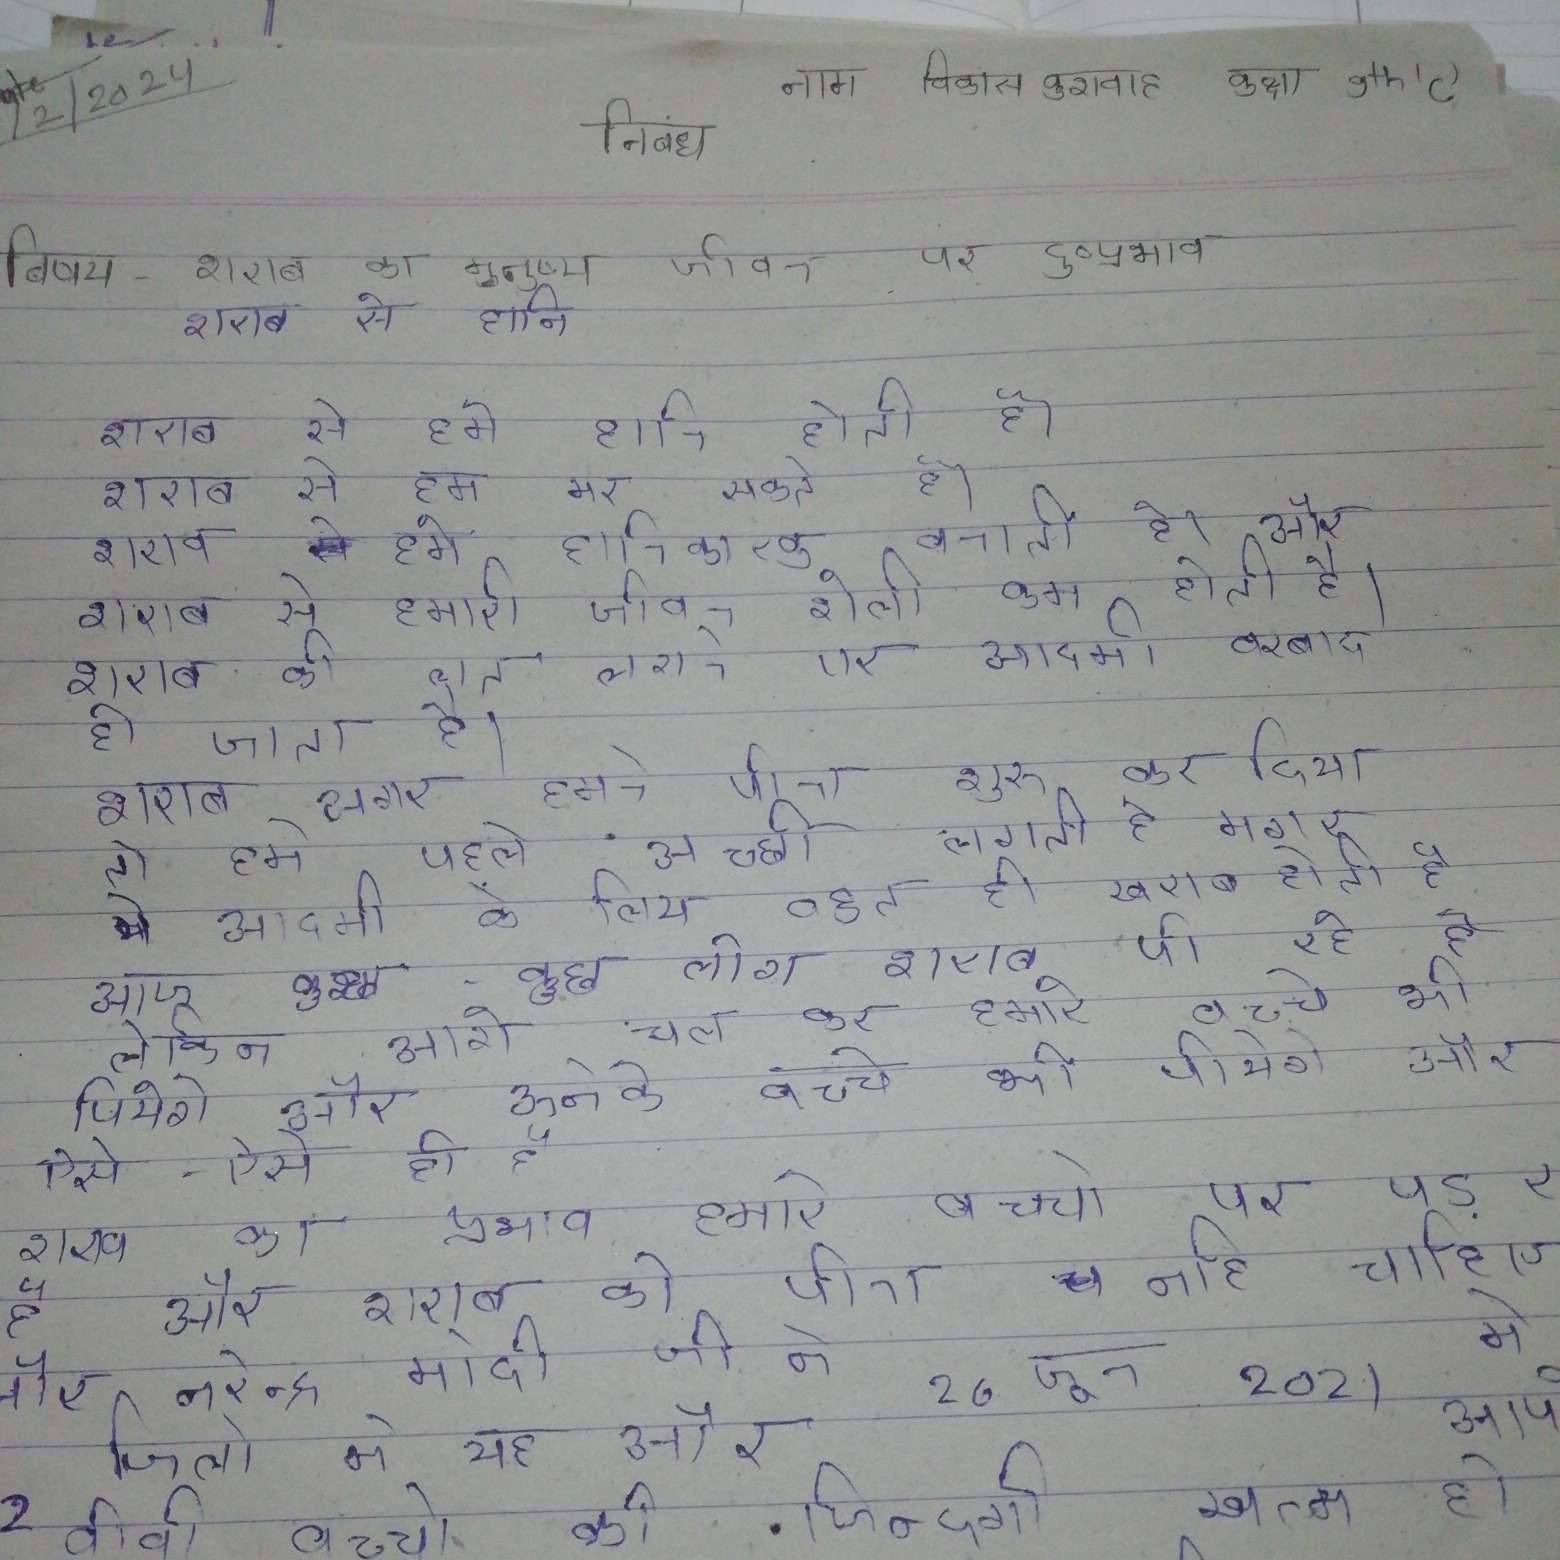 2/2024
नाम विकास कुशवाह कक्षा 9th
निबंध
विषय - शराब का मनुष्य जीवन पर दुष्प्रभाव
शराब से हानि
शराब से हमे हानि होती है।
शराब से हम मर सकते है।
शराब हमें हानिकारक बनाती है। और
शराब से हमारी जीवन शेली कम होती है।
शराब की लत लगने पर आदमी बरबाद
हो जाता है।
शराब अगर हमने पीना शुरू कर दिया
तो हमे पहले अच्छी लगती है मगर
आदमी के लिय बहुत ही खराब होती है
कुछ लोग शराब पी रहे है
लेकिन आगे चल कर हमारे बच्चे भी
पियेगे और उनके बच्चे भी पीयेगे और
ऐसे - ऐसे ही है
शराब का प्रभाव हमारे बच्चो पर पड़ र
है और शराब को पीना नहि चाहिए
और नरेन्द्र मोदी जी ने 26 जून 2021 मे
जिलो मे यह और आप
2 वीवी बच्चो की जिन्दगी खत्म हो